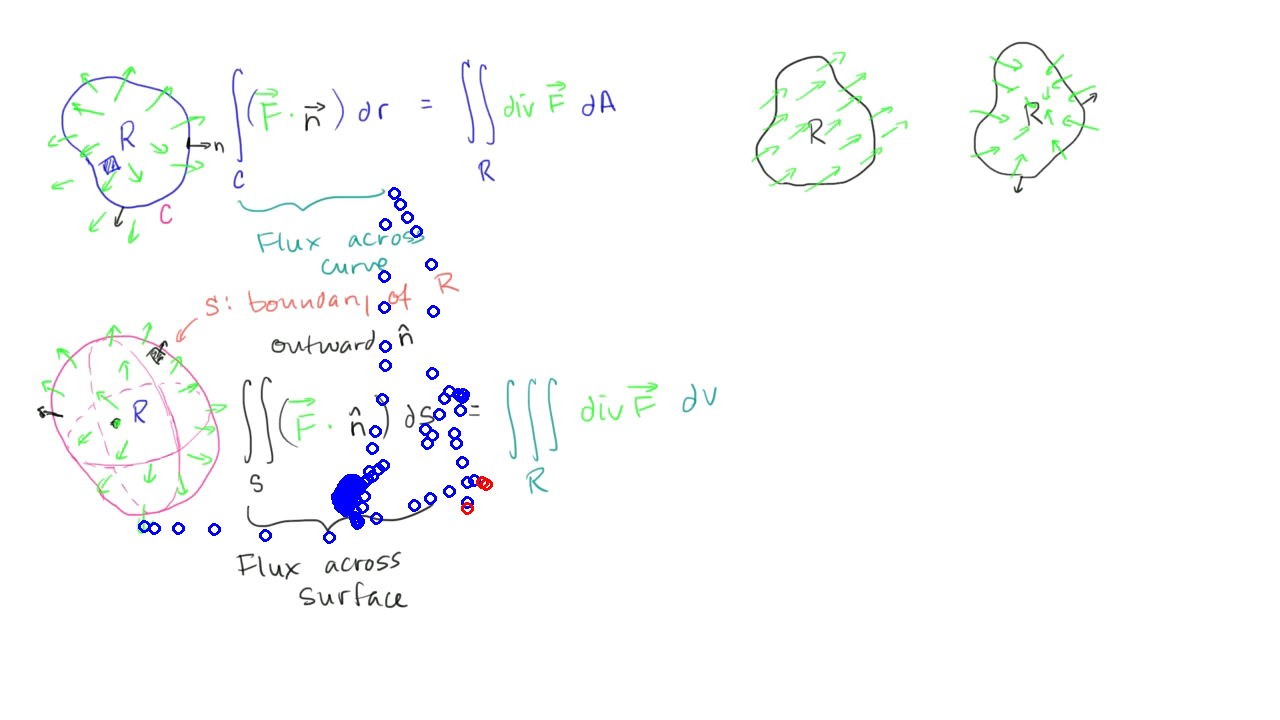 R
n
C
∫_C (F⃗ · n⃗) dr = ∬_R div F⃗ dA
Flux across
curve
R
R
S: boundary of R
outward n̂
R
n̂
∬_S (F⃗ · n̂) ds = ∭_R div F⃗ dV
Flux across
surface